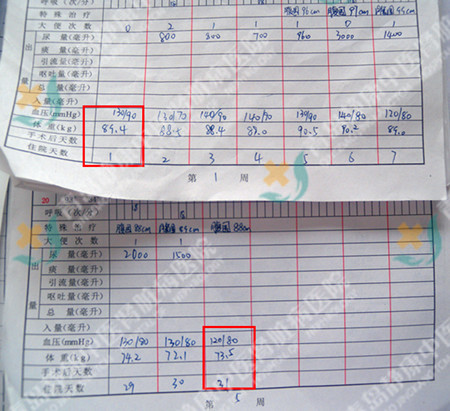 呼吸(次/分)
特殊治疗 腹围96cm 腹围97cm 腹围95cm
大便次数 0 2 1 1 1 0
尿量(毫升) 800 800 700 960 3000 1400
痰量(毫升)
引流量(毫升)
呕吐量(毫升)
总量(毫升)
出
量
入量(毫升)
血压(mmHg) 130/90 130/70 140/90 140/70 130/90 140/80 120/80
体重(kg) 89.4 88.4 89.0 90.5 90.2 89.0
手术后天数
住院天数 1 2 3 4 5 6 7
第 1 周
20
呼吸(次/分)
特殊治疗 腹围88cm 腹围89cm 腹围88cm
大便次数 1 1
尿量(毫升) 2000 1500
痰量(毫升)
引流量(毫升)
呕吐量(毫升)
总量(毫升)
出
量
入量(毫升)
血压(mmHg) 130/80 130/80 120/80
体重(kg) 74.2 72.1 73.5
手术后天数
住院天数 29 30 31
第 5 周